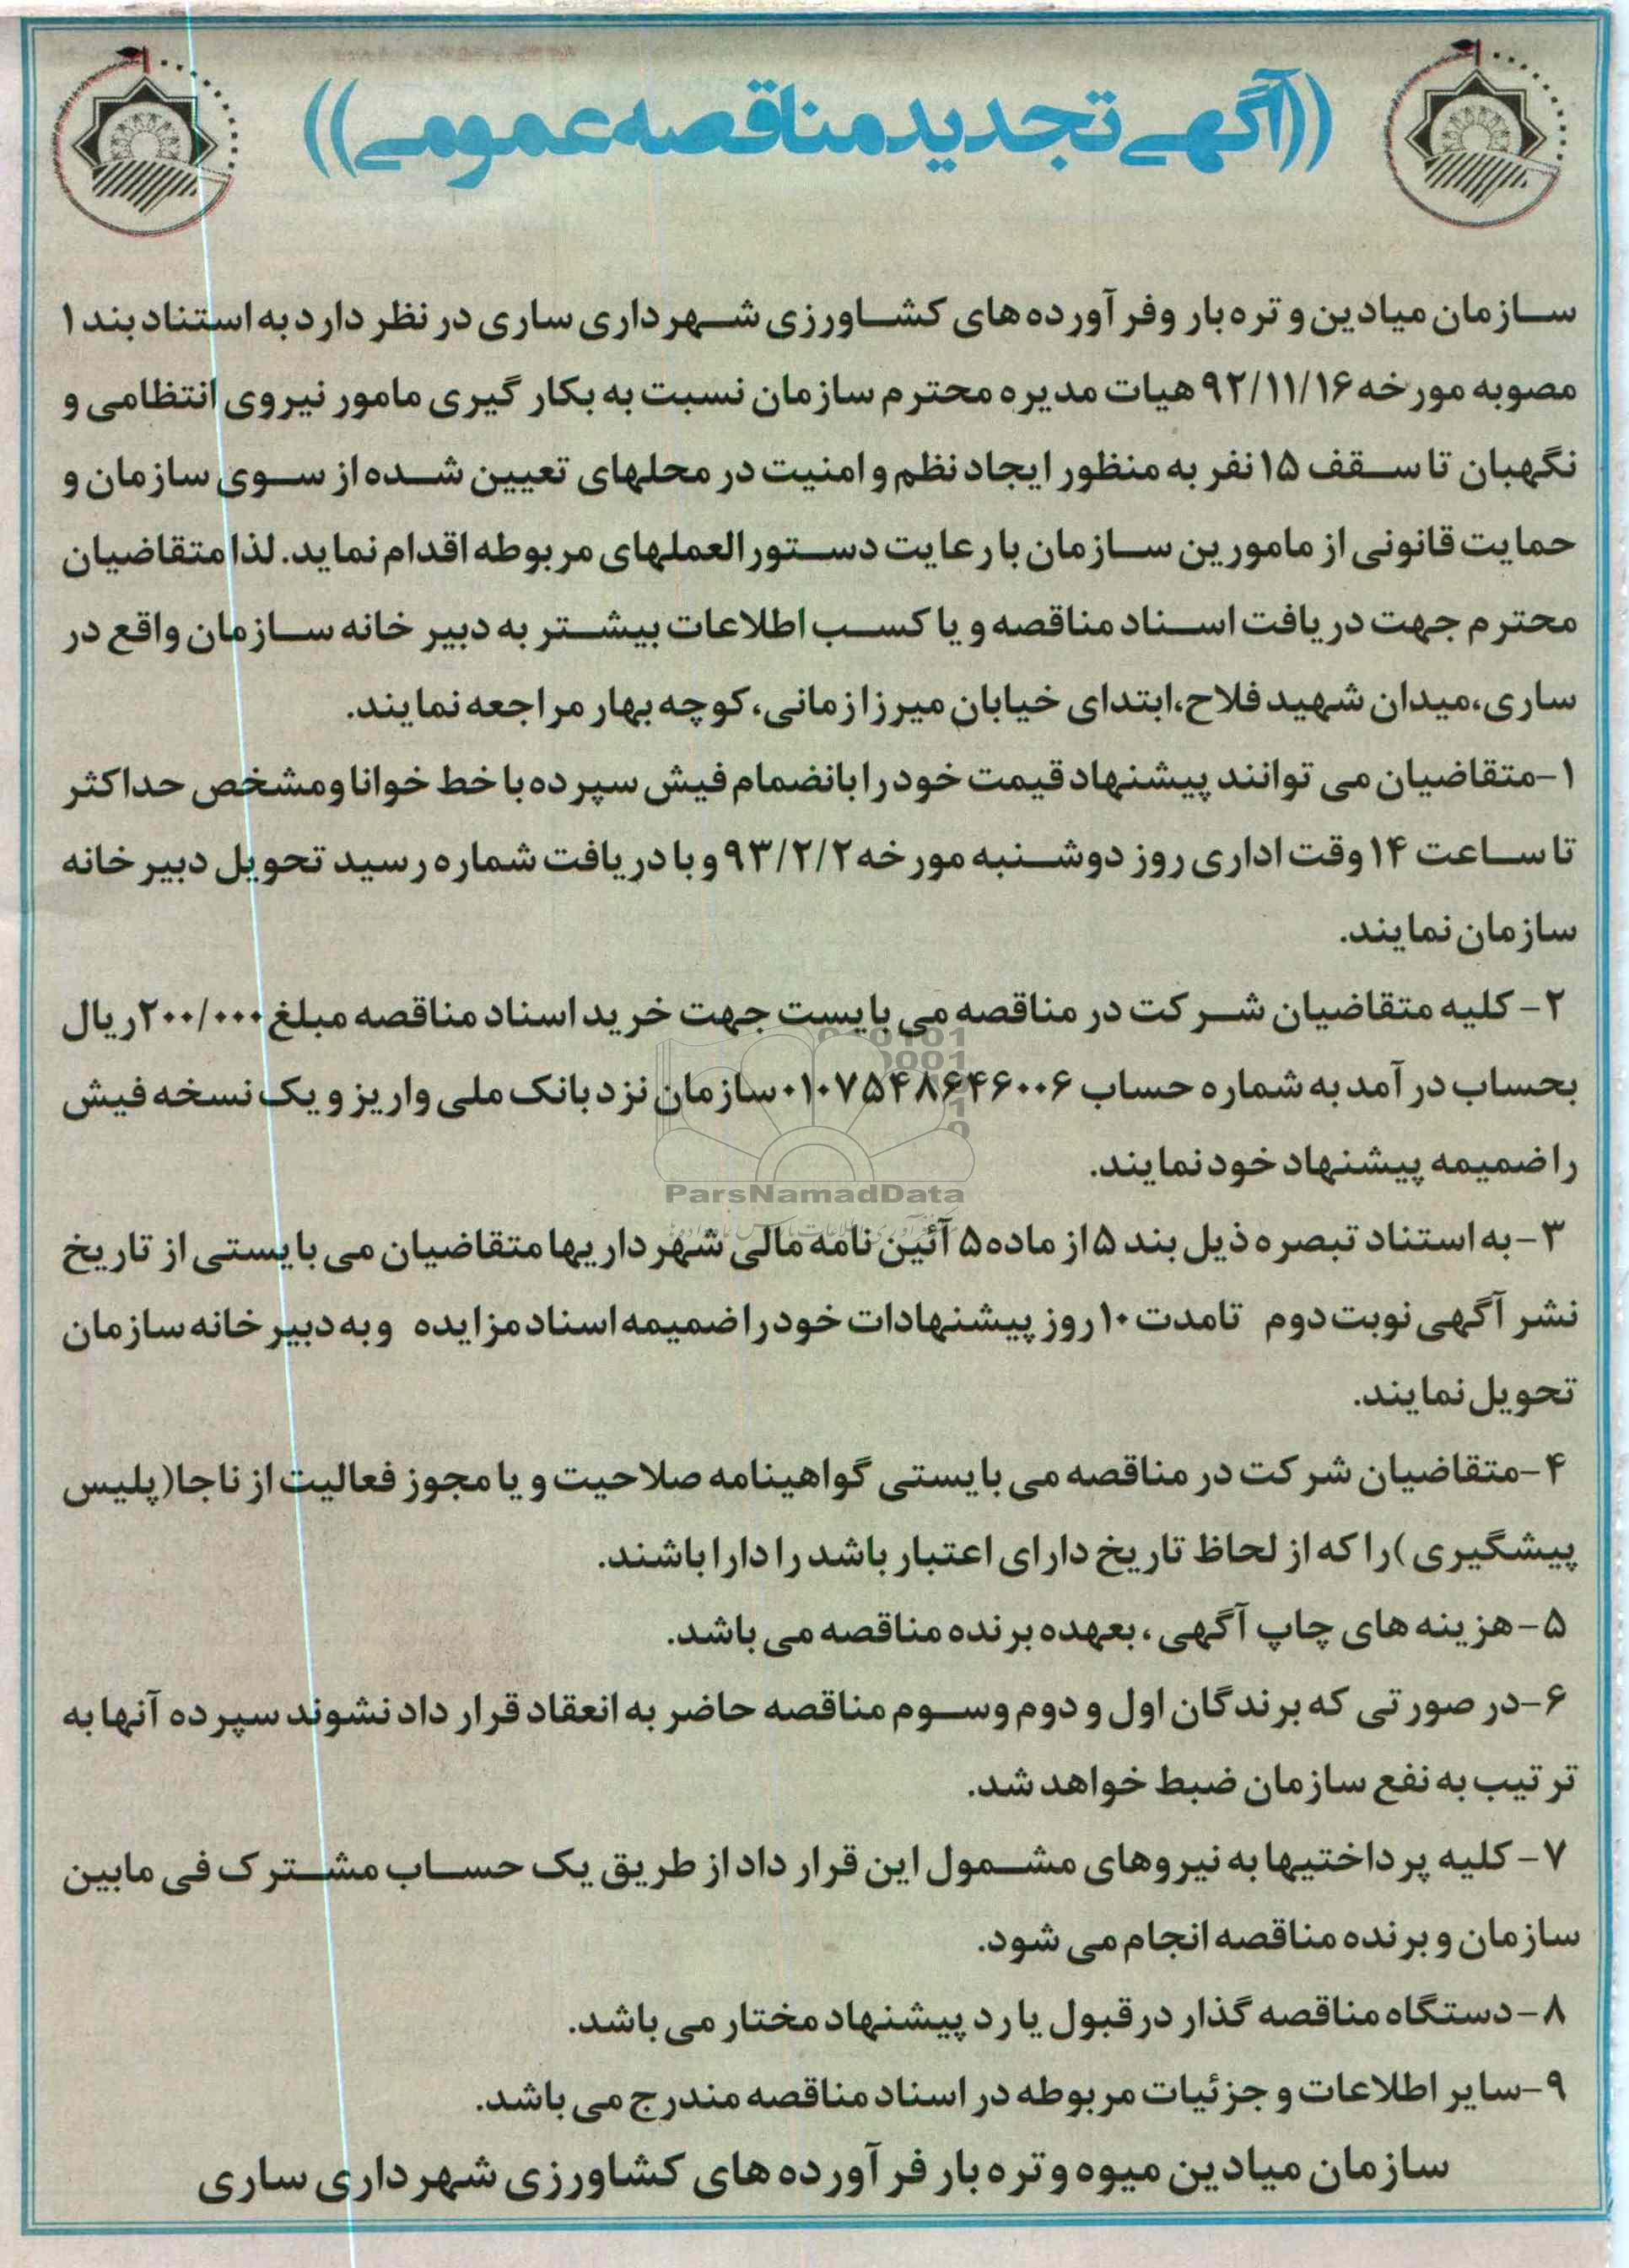 ((آگهی تجدید مناقصه عمومی))
سازمان میادین و تره بار وفرآورده های کشاورزی شهرداری ساری در نظر دارد به استناد بند ۱
مصوبه مورخه ۹۲/۱۱/۱۶ هیات مدیره محترم سازمان نسبت به بکار گیری مامور نیروی انتظامی و
نگهبان تا سقف ۱۵ نفر به منظور ایجاد نظم و امنیت در محلهای تعیین شده از سوی سازمان و
حمایت قانونی از مامورین سازمان با رعایت دستورالعملهای مربوطه اقدام نماید. لذا متقاضیان
محترم جهت دریافت اسناد مناقصه و یا کسب اطلاعات بیشتر به دبیر خانه سازمان واقع در
ساری،میدان شهید فلاح،ابتدای خیابان میرزازمانی،کوچه بهار مراجعه نمایند.
۱-متقاضیان می توانند پیشنهاد قیمت خود را بانضمام فیش سپرده با خط خوانا ومشخص حداکثر
تا ساعت ۱۴ وقت اداری روز دوشنبه مورخه ۹۳/۲/۲ و با دریافت شماره رسید تحویل دبیر خانه
سازمان نمایند.
۲- کلیه متقاضیان شرکت در مناقصه می بایست جهت خرید اسناد مناقصه مبلغ ۲۰۰/۰۰۰ریال
بحساب درآمد به شماره حساب ۰۱۰۷۵۴۸۶۴۶۰۰۶ سازمان نزد بانک ملی واریز و یک نسخه فیش
را ضمیمه پیشنهاد خود نمایند.
ParsNamadData
۳-به استناد تبصره ذیل بند ۵ از ماده ۵ آئین نامه مالی شهرداریها متقاضیان می بایستی از تاریخ
نشر آگهی نوبت دوم تامدت ۱۰ روز پیشنهادات خود را ضمیمه اسناد مزایده وبه دبیر خانه سازمان
تحویل نمایند.
۴-متقاضیان شرکت در مناقصه می بایستی گواهینامه صلاحیت و یا مجوز فعالیت از ناجا(پلیس
پیشگیری)را که از لحاظ تاریخ دارای اعتبار باشد را دارا باشند.
۵-هزینه های چاپ آگهی ، بعهده برنده مناقصه می باشد.
۶-در صورتی که برندگان اول و دوم وسوم مناقصه حاضر به انعقاد قرار داد نشوند سپرده آنها به
ترتیب به نفع سازمان ضبط خواهد شد.
۷- کلیه پرداختیها به نیروهای مشمول این قرار داد از طریق یک حساب مشترک فی مابین
سازمان و برنده مناقصه انجام می شود.
۸-دستگاه مناقصه گذار درقبول یا رد پیشنهاد مختار می باشد.
۹-سایر اطلاعات و جزئیات مربوطه در اسناد مناقصه مندرج می باشد.
سازمان میادین میوه و تره بار فرآورده های کشاورزی شهرداری ساری